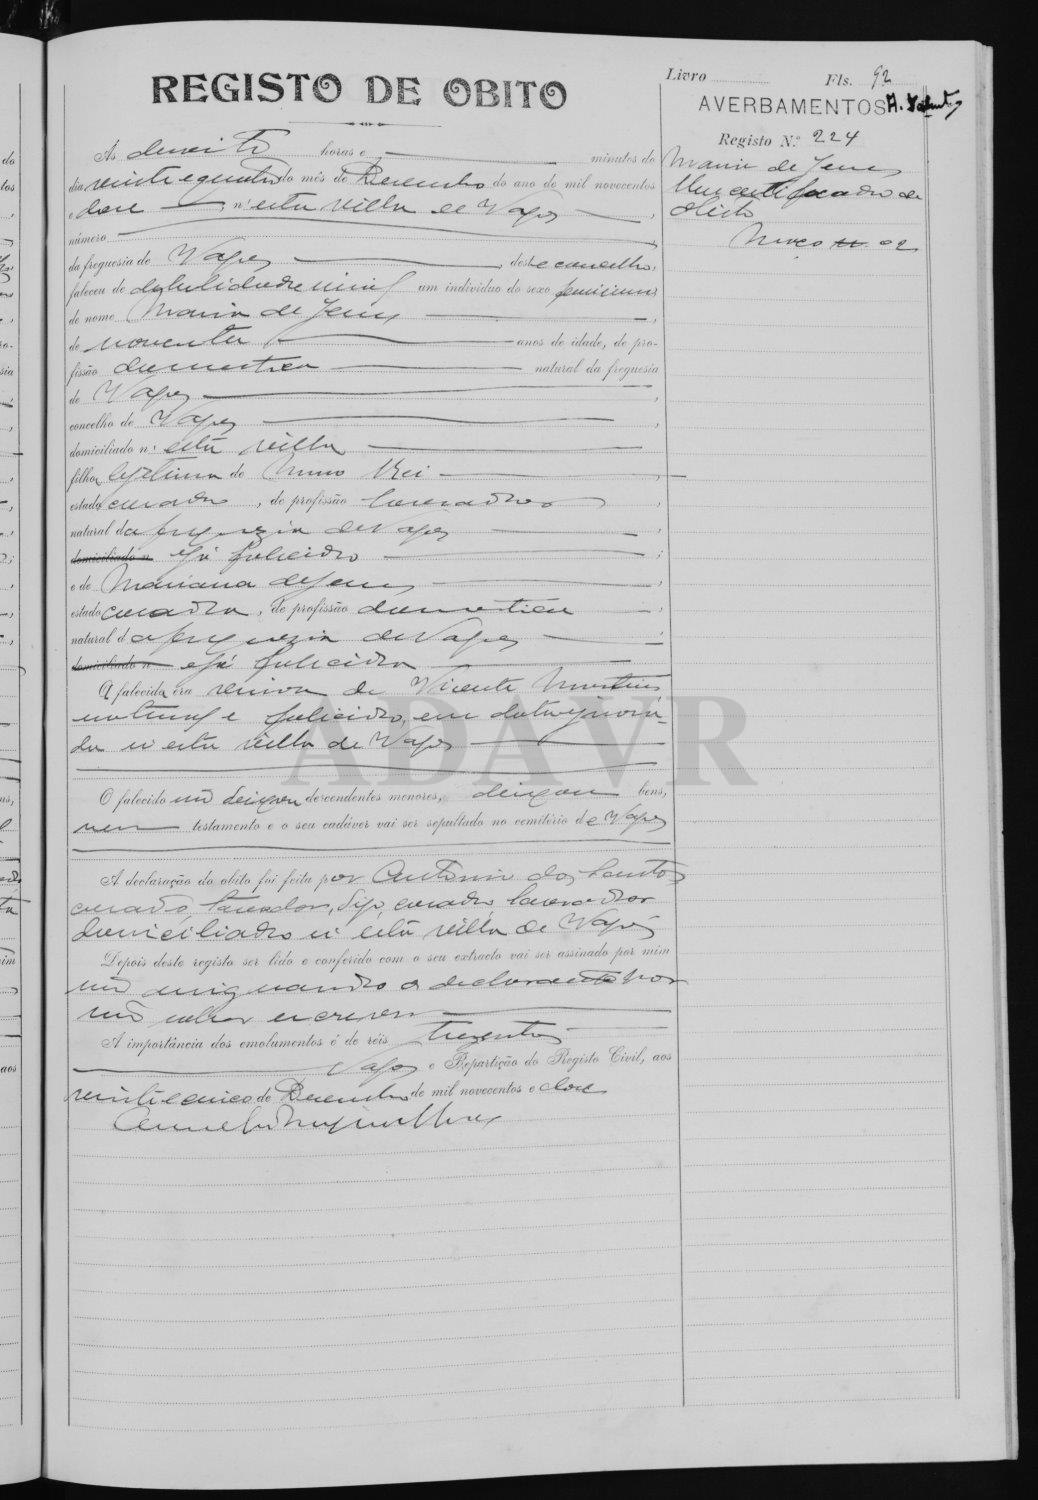 Livro Fls. 92
REGISTO DE OBITO
AVERBAMENTOS
Registo N.º 224
Maria de Jesus
Um certificado de
obito
As dezoito horas e — minutos do
dia vinte e quatro do mês de Dezembro do ano de mil novecentos
e doze — n'esta villa de Vagos —,
número —
da freguesia de Vagos — deste concelho,
faleceu de debilidade senil um indivíduo do sexo feminino
de nome Maria de Jesus —,
de noventa — anos de idade, de pro-
fissão domestica — natural da freguesia
de Vagos —,
concelho de Vagos —,
domiciliado n'esta villa —
filha legitima de Nuno Rei —,
estado casado, de profissão lavrador —,
natural da freguezia de Vagos —
domiciliado n e já falecido —;
e de Mariana de Jesus —,
estado casada, de profissão domestica —,
natural da freguezia de Vagos —;
domiciliado n e já falecida —
A falecida era viuva de Vicente Martins
natural e falecido, em data ignora-
da n'esta villa de Vagos —
O falecido não deixou descendentes menores, deixou bens,
nem testamento e o seu cadáver vai ser sepultado no cemitério de Vagos
A declaração do obito foi feita por Antonio dos Santos
casado, lavrador, digo, casado, lavrador
domiciliado n'esta villa de Vagos
Depois deste registo ser lido e conferido com o seu extracto vai ser assinado por mim
não assignando o declarante por
não saber escrever —
A importância dos emolumentos é de réis trezentos —
— Vagos e Repartição do Registo Civil, aos
vinte e cinco de Dezembro de mil novecentos e doze
ADAVR